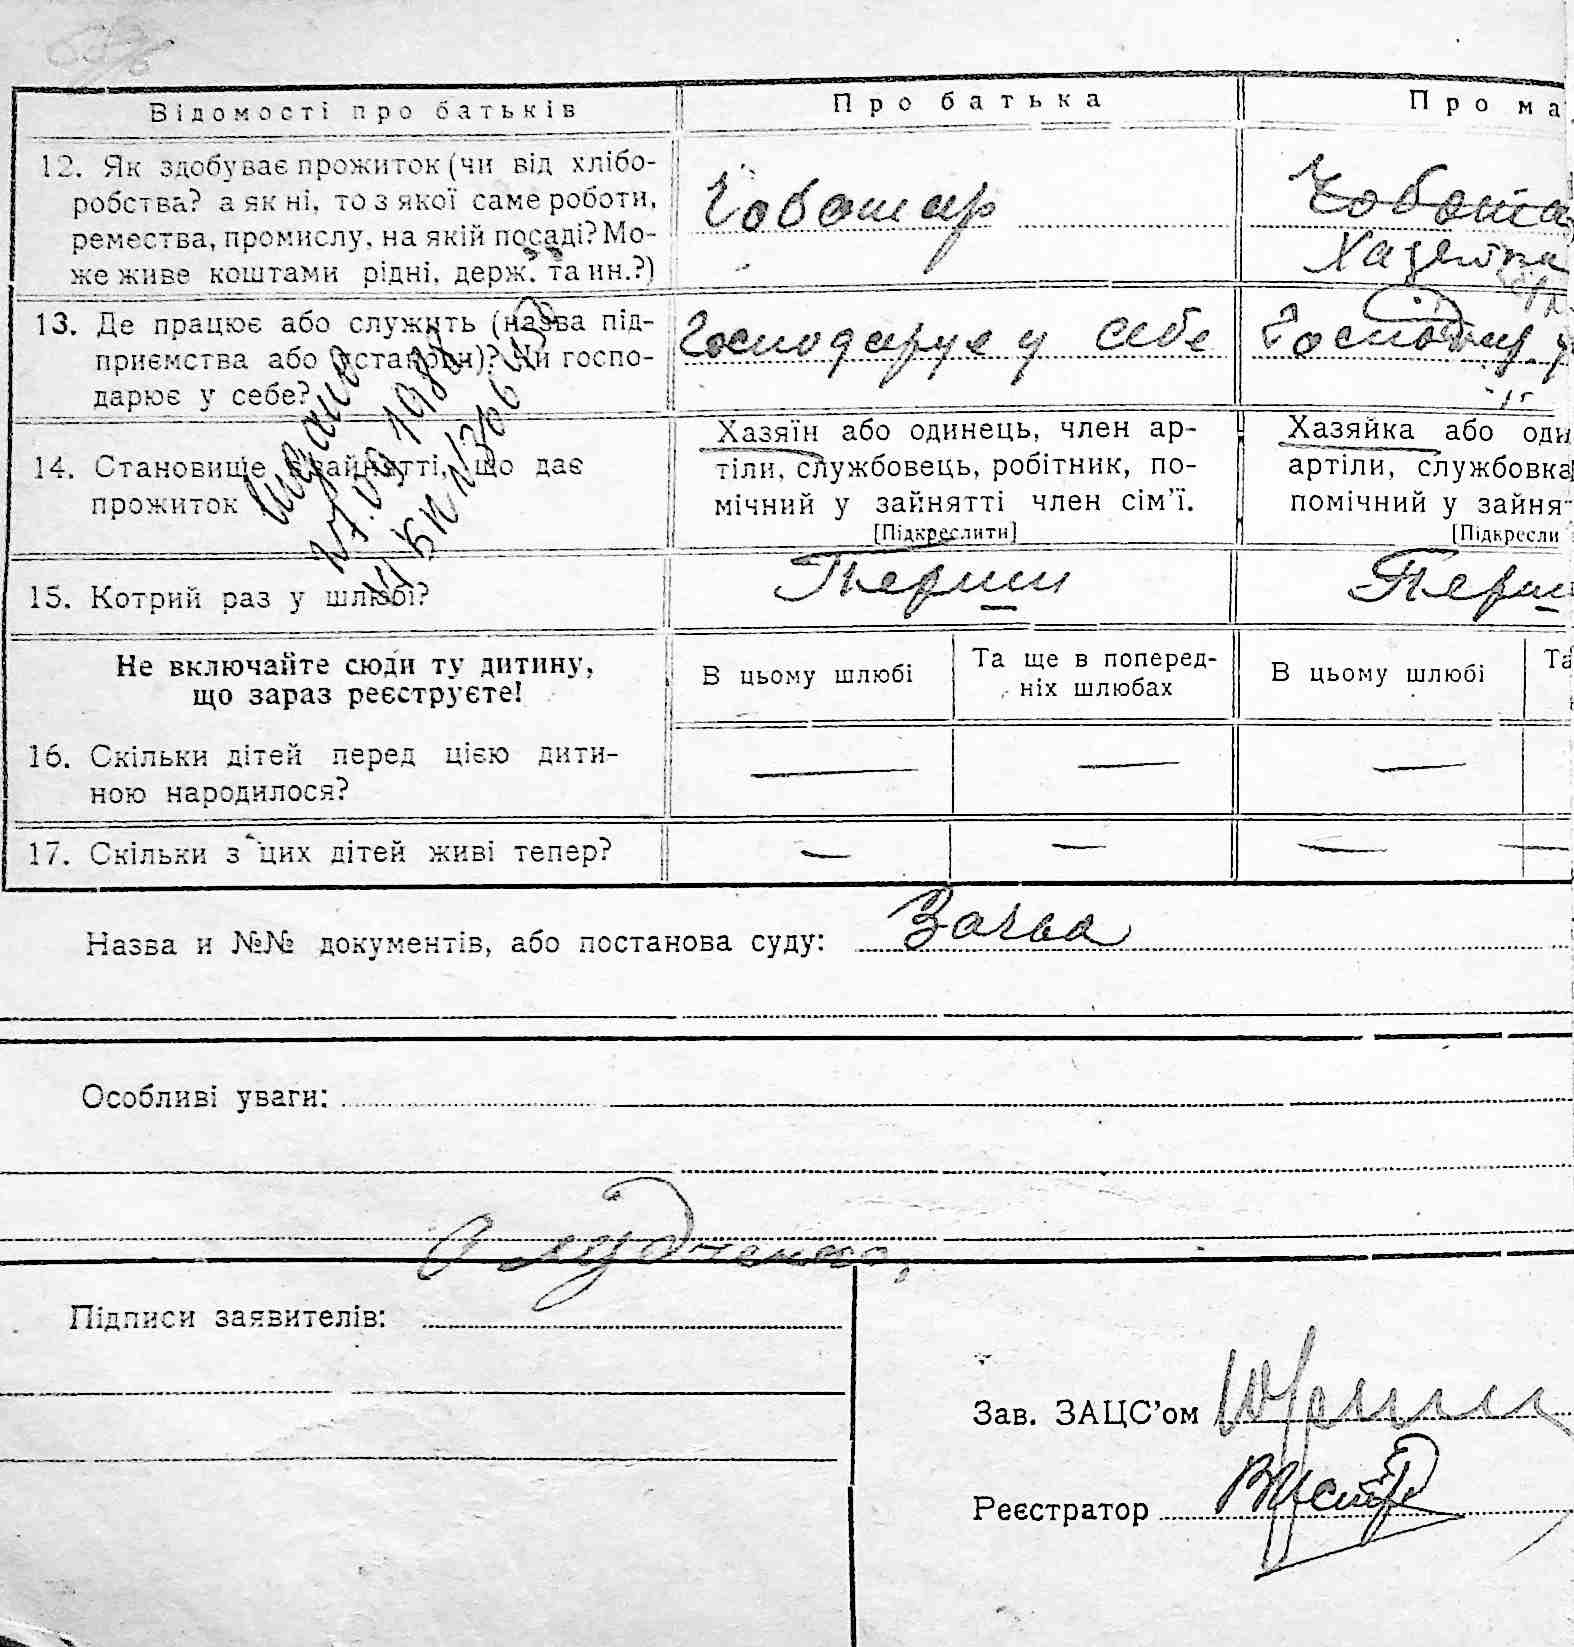 Відомості про батьків
Про батька
Про ма
12. Як здобуває прожиток (чи від хлібо-
робства? а як ні, то з якої саме роботи,
ремества, промислу, на якій посаді? Мо-
же живе коштами рідні, держ. та ин.?)
Чоботар
Чобота
Хазяйка
13. Де працює або служить (назва під-
приємства або установи)? Чи госпо-
дарює у себе?
Господарує у себе
Господар у
14. Становище в зайнятті, що дає
прожиток
Хазяїн або одинець, член ар-
тіли, службовець, робітник, по-
мічний у зайнятті член сім'ї.
[Підкреслити]
Хазяйка або оди
артіли, службовка
помічний у зайня-
[Підкресли
Видано
15. Котрий раз у шлюбі?
Перши
Перш
Не включайте сюди ту дитину,
що зараз реєструєте!
В цьому шлюбі
Та ще в поперед-
ніх шлюбах
В цьому шлюбі
Та
16. Скільки дітей перед цією дити-
ною народилося?
— — —
17. Скільки з цих дітей живі тепер?
— — — —
Назва и №№ документів, або постанова суду:
Особливі уваги:
Підписи заявителів:
Зав. ЗАЦС'ом
Реєстратор